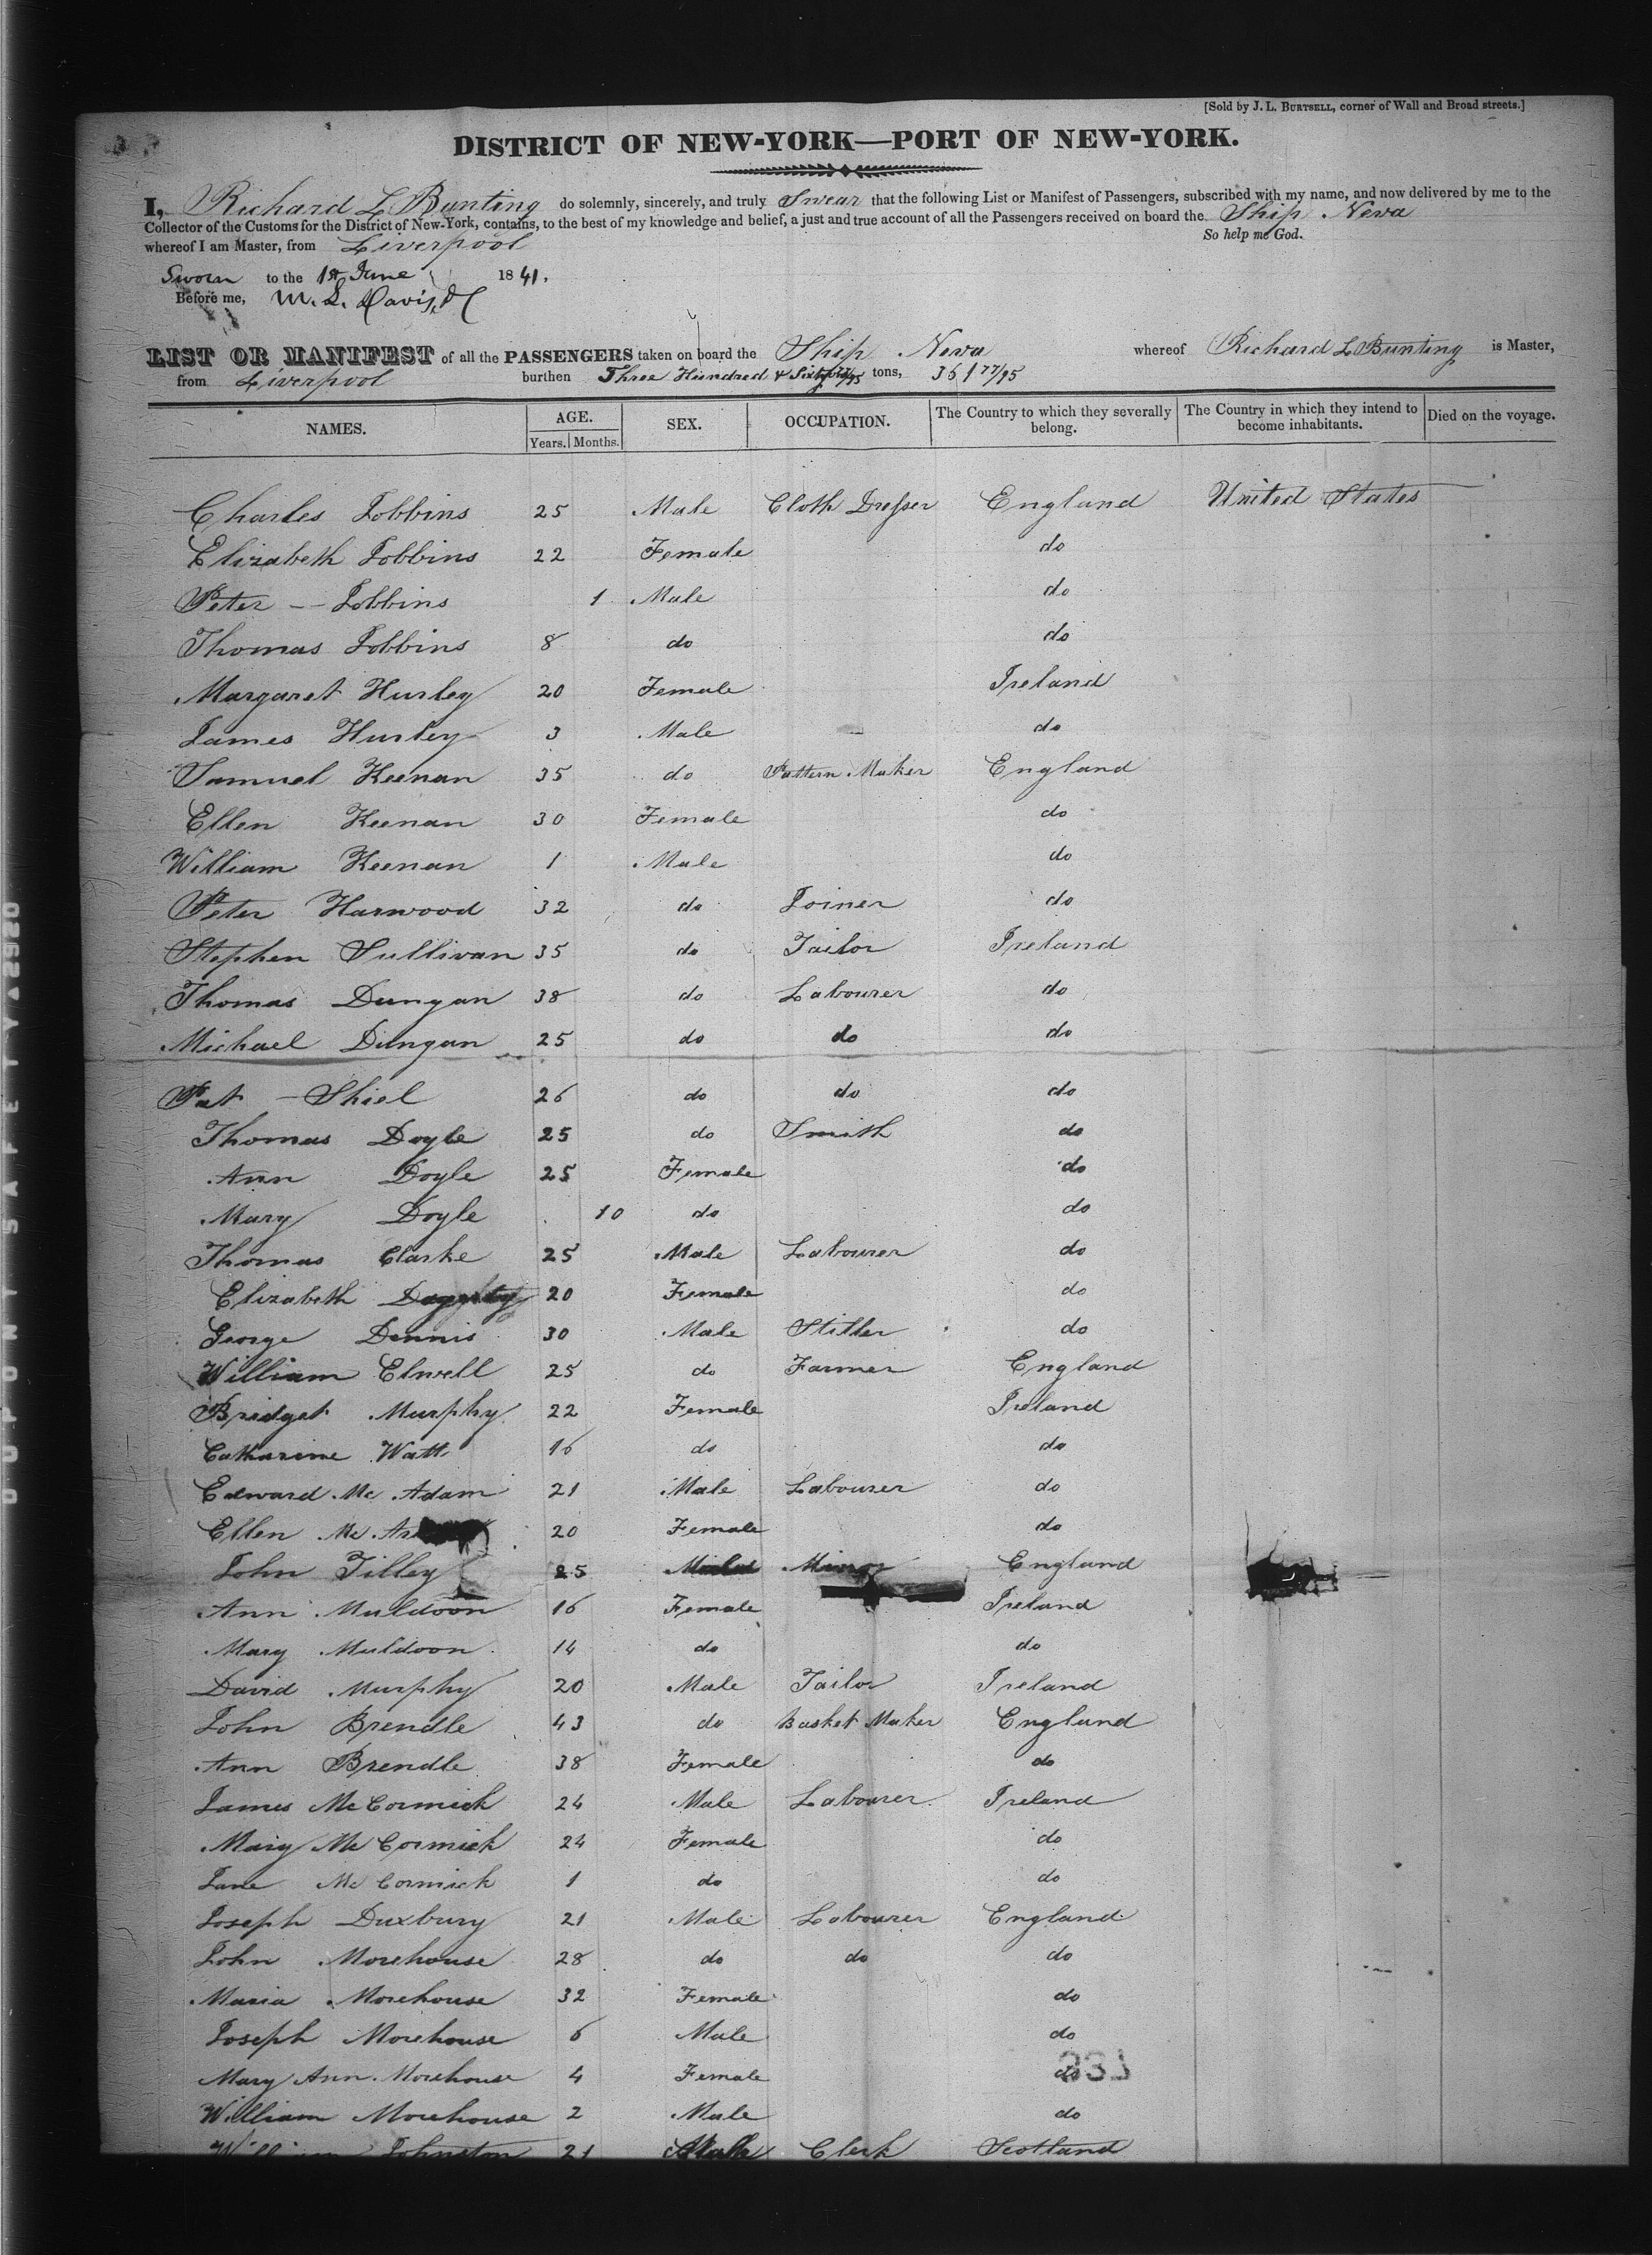 [Sold by J. L. BURTSELL, corner of Wall and Broad streets.]
DISTRICT OF NEW-YORK—PORT OF NEW-YORK.
I, Richard L Bunting do solemnly, sincerely, and truly Swear that the following List or Manifest of Passengers, subscribed with my name, and now delivered by me to the
Collector of the Customs for the District of New-York, contains, to the best of my knowledge and belief, a just and true account of all the Passengers received on board the Ship Neva
whereof I am Master, from Liverpool So help me God.
Sworn to the 1st June 1841.
Before me, M. L. Davis,
LIST OR MANIFEST of all the PASSENGERS taken on board the Ship Neva whereof Richard L Bunting is Master,
from Liverpool burthen Three Hundred & 77/95 tons, 361 77/95
NAMES. AGE. SEX. OCCUPATION. The Country to which they severally belong. The Country in which they intend to become inhabitants. Died on the voyage.
Years. Months.
Charles Jobbins 25 Male Cloth Dresser England United States
Elizabeth Jobbins 22 Female do
Peter — Jobbins 1 Male do
Thomas Jobbins 8 do do
Margaret Hurley 20 Female Ireland
James Hurley 3 Male do
Samuel Keenan 35 do Pattern Maker England
Ellen Keenan 30 Female do
William Keenan 1 Male do
Peter Harwood 32 do Joiner do
Stephen Sullivan 35 do Tailor Ireland
Thomas Dungan 38 do Labourer do
Michael Dungan 25 do do do
Pat — Shiel 26 do do do
Thomas Doyle 25 do Smith do
Ann Doyle 25 Female do
Mary Doyle 10 do do
Thomas Clarke 25 Male Labourer do
Elizabeth 20 Female do
George Dennis 30 Male do
William Elwell 25 do Farmer England
Bridget Murphy 22 Female Ireland
Catharine Watt 16 do do
Edward Mc Adam 21 Male Labourer do
Ellen Mc 20 Female do
John Tilley 25 Male England
Ann Muldoon 16 Female Ireland
Mary Muldoon 14 do do
David Murphy 20 Male Tailor Ireland
John Brendle 43 do Basket Maker England
Ann Brendle 38 Female do
James McCormick 24 Male Labourer Ireland
Mary McCormick 24 Female do
Jane McCormick 1 do do
Joseph Duxbury 21 Male Labourer England
John Morehouse 28 do do do
Maria Morehouse 32 Female do
Joseph Morehouse 6 Male do
Mary Ann Morehouse 4 Female do
William Morehouse 2 Male do
William Johnston 21 Male Clerk Scotland
DUPONT SAFETY